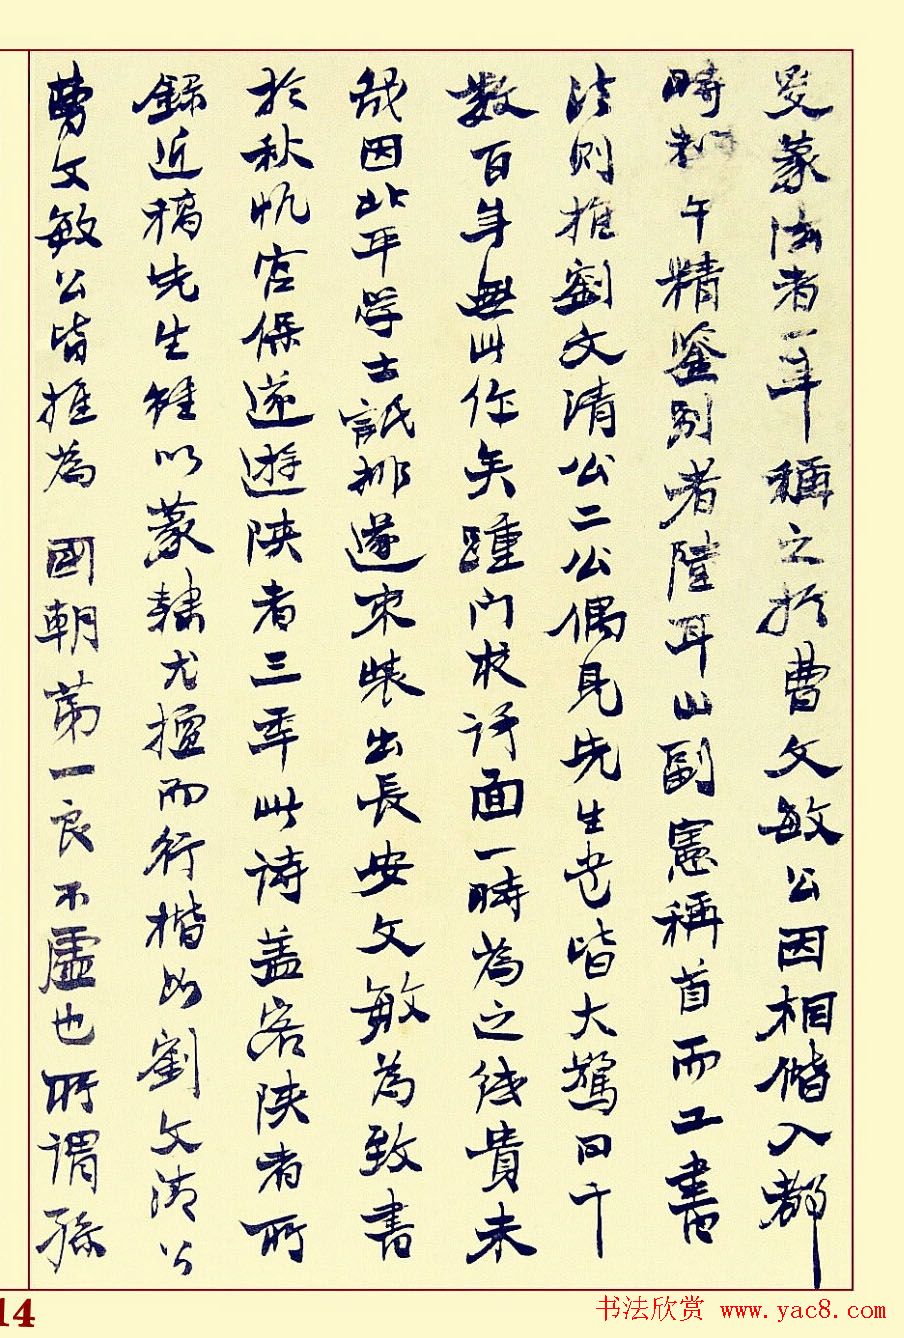 受篆法者一年稱之於曹文敏公因相偕入都
時都中精鉴别者陸耳山副憲稱首而工書
法則推劉文清公二公偶見先生書皆大驚曰千
數百年無此作矣踵門校諍面一時為之後貴未
幾因北平学士詆排遂束裝出長安文敏為致書
於秋帆宫保遂遊陕者三年此诗盖客陕者所
録近稿先生雖以篆隸尤擅而行楷如劉文清公
曹文敏公皆推為 國朝第一良不虚也所謂孫
14
书法欣赏 www.yac8.com